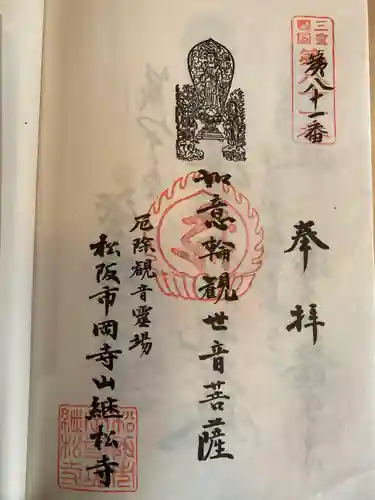 三重
四国
第八十一番
奉拝
如意輪觀世音菩薩
厄除觀音靈場
松阪市岡寺山継松寺
継松寺